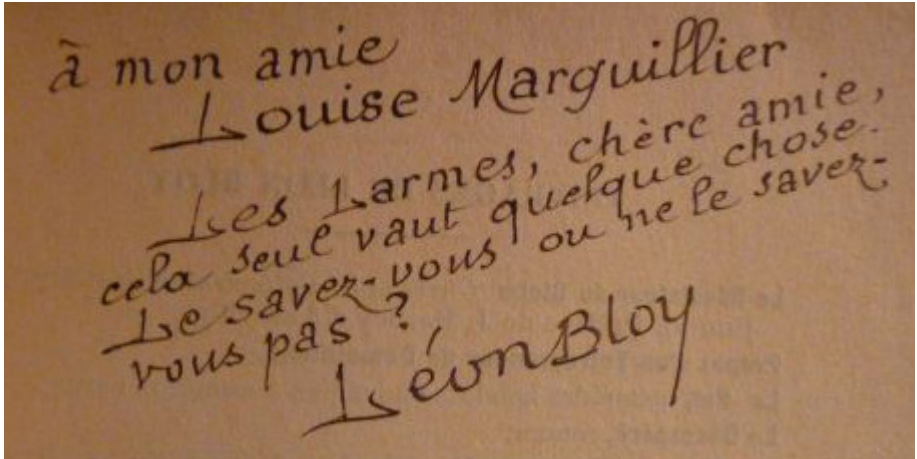 à mon amie
Louise Marguillier
Les Larmes, chère amie,
cela seul vaut quelque chose.
Le savez-vous ou ne le savez-
vous pas ?
Léon Bloy